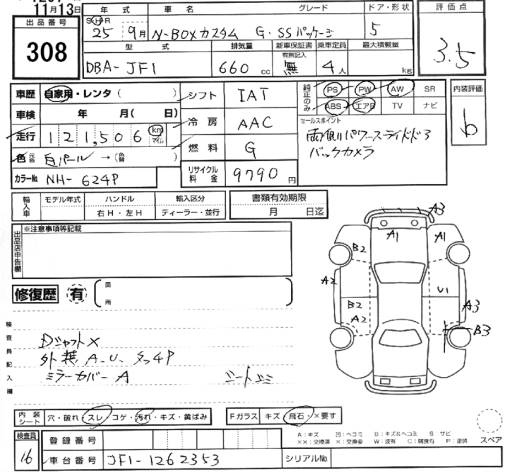 11月13日
出品番号
308
年式
グレード
ドア・形状
25年 9月 N-BOXカスタム G・SSパッケージ 5
型式
排気量
新車保証書
乗車定員
最大積載量
DBA-JF1 660cc 有 無 4人 kg
評価点
3.5
車歴 自家用・レンタ( ) シフト IAT
車検 年 月( 日) 冷房 AAC
走行 121,506 km マイル 燃料 G
色 白パール →( ) リサイクル料金 9790円
カラーNo. NH-624P
純正のみ PS PW AW SR
ABS エアB TV ナビ
セールスポイント
両側パワースライドドア
バックカメラ
内装評価
b
輸入車 モデル年式 ハンドル 輸入区分 書類有効期限
右H・左H ディーラー・並行 月 日迄
出品店申告欄
※注意事項等記載
修復歴 有 箇所
A1 A1 A3
B2
A2 U1
B2
A2 A3
B3
検査員記入欄
外装 A.U.
ミラーカバーA
シートシミ
内装シート 穴・破れ・スレ・コゲ・汚れ・キズ・黄ばみ
Fガラス キズ・飛石・×要す
A：キズ U：凹 B：キズ&ヘコミ S：サビ
XX：交換済 X：交換要 W：波有 C：腐食有 P：塗装
スペア
検査員
16
登録番号
車台番号 JF1-1262353 シリアルNo.